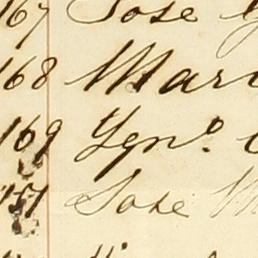 167 Jose
168 Mar
169 Ygn.º
171 Jose M